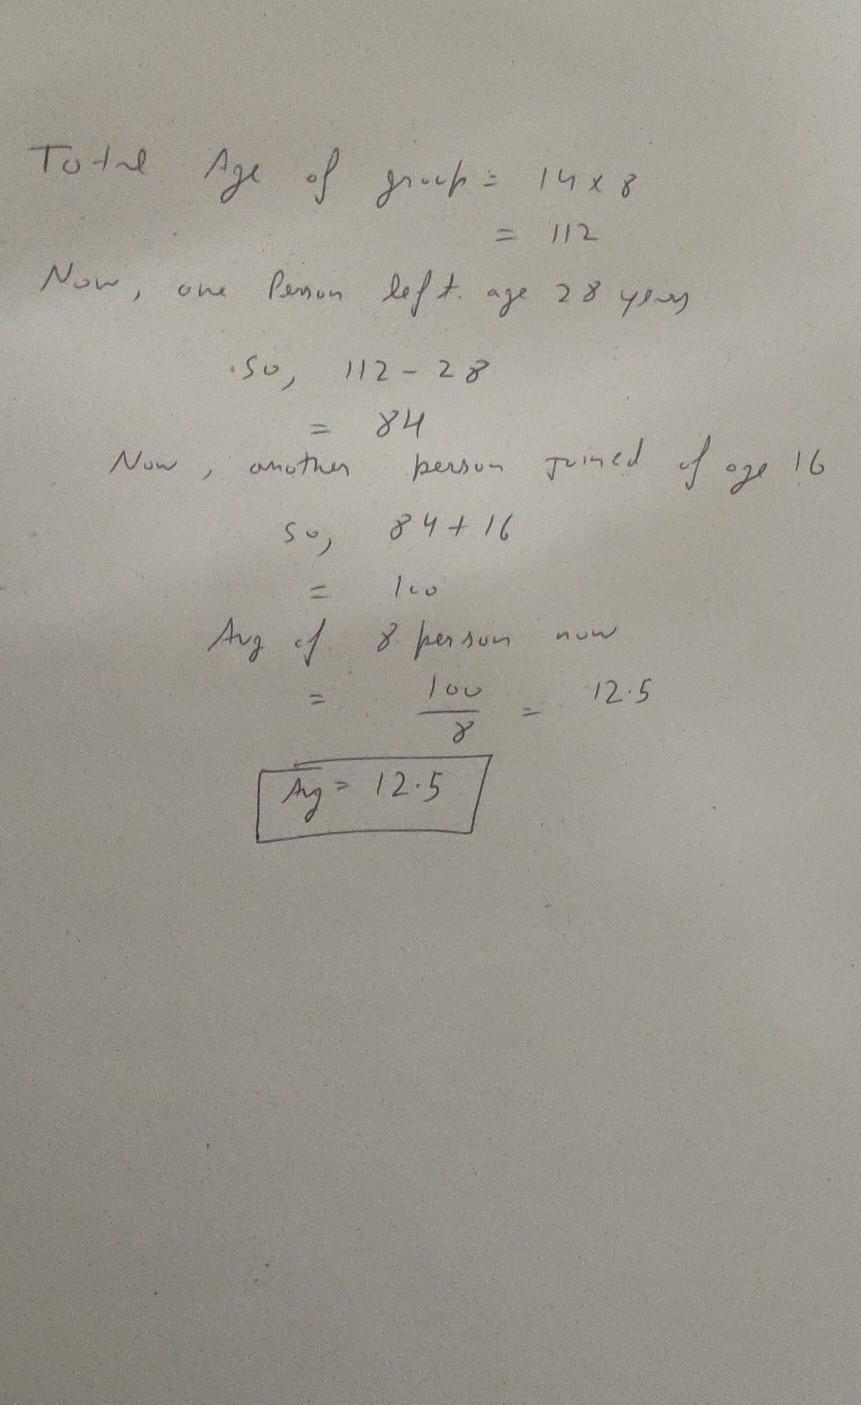 Total Age of group = 14 x 8
= 112
Now, one Person left. age 28 years
so, 112 - 28
= 84
Now, another person joined of age 16
so, 84 + 16
= 100
Avg of 8 person now
= 100/8 = 12.5
Avg = 12.5